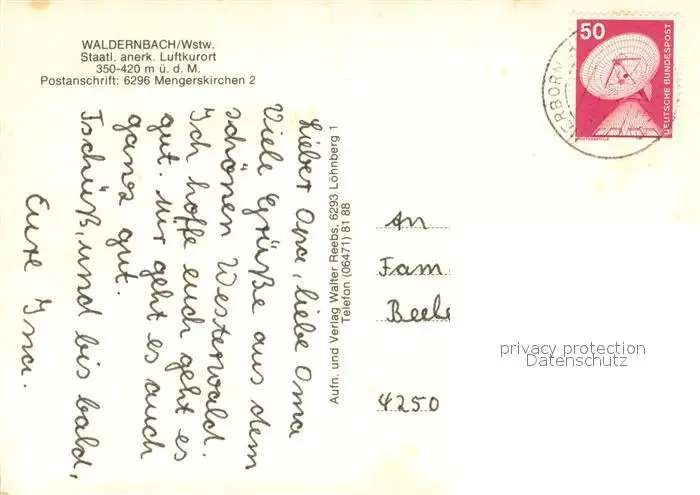 WALDERNBACH/Wstw.
Staatl. anerk. Luftkurort
350-420 m ü. d. M.
Postanschrift: 6296 Mengerskirchen 2
Lieber Opa, liebe Oma
Viele Grüße aus dem
schönen Westerwald.
Ich hoffe euch geht es
gut. Mir geht es auch
ganz gut.
Tschüß, und bis bald,
Eure Ina.
Aufn. und Verlag Walter Reebs, 6293 Löhnberg 1
Telefon (06471) 81 88
50
DEUTSCHE BUNDESPOST
ERBORN
An
Fam.
4250
privacy protection
Datenschutz